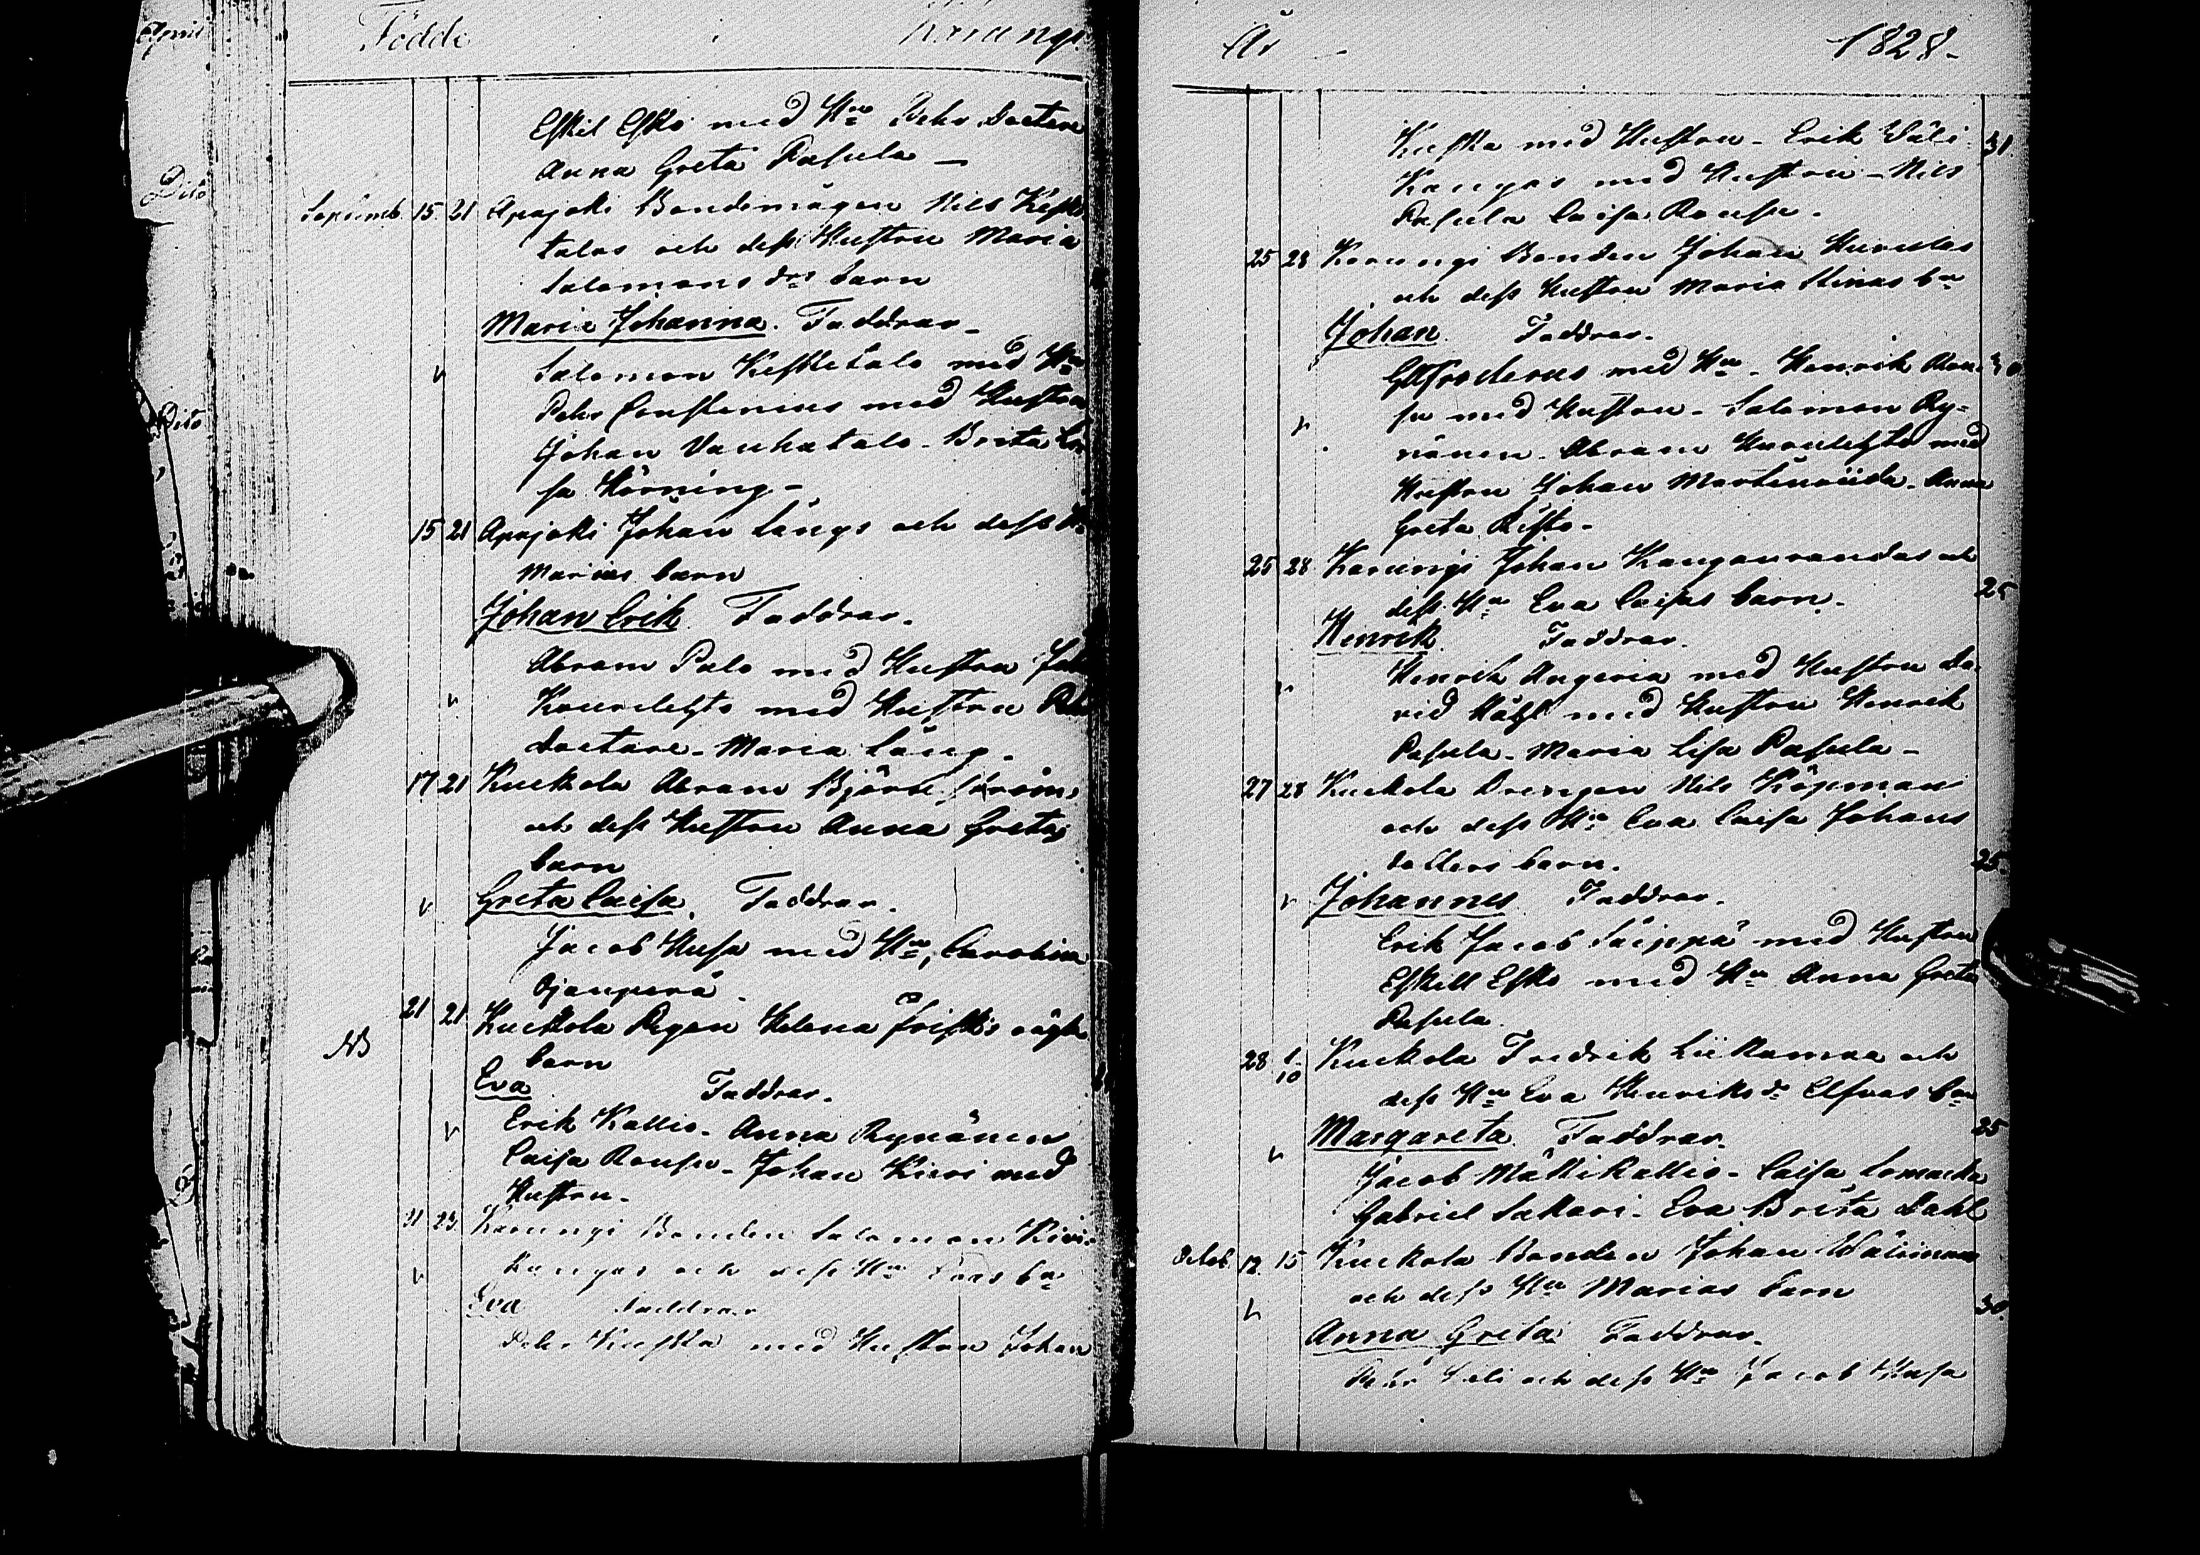 April
Dito
Dito
Födde i Karungi
Eskil Esko med Hu Pehr Doctare
Anna Greta Pasula –
Septemb. 15 21 Apajoki Bondemågen Nils Keski
talos och dess Hustru Maria
Salomons drs barn
Maria Johanna. Faddrar –
Salomon Keskitalo med Hu
Pehr med Hustru
Johan Vanhatalo – Brita
sa Hörning –
15 21 Apajoki Johan Längs och dess Hu
Marias barn
Johan Erik Faddrar.
Abram Palo med Hustru
med Hustru
Doctare – Maria Läng.
17 21 Kuckola Abram Björn
och dess Hustru Anna Gretas
barn
Greta Caisa. Faddrar.
Jacob Husa med Hu, Carolina
Ojanperä.
21 21 Kuckola Pigan Helena oägta
NB barn
Eva Faddrar.
Erik Kallio – Anna Rynänen
Caisa Rousu – Johan Kivi med
Hustru –
21 23 Karungi Bonden Salomon Kivi
Kangas och dess Hu bn
Eva Faddrar
Pehr Kuska med Hustru Johan
År 1828 –
Kuska med Hustru – Erik Väli
Kangas med Hustru – Nils
Pasula Caisa Rousu.
25 28 Karungi Bonden Johan
och dess Hustru Maria Stinas bn
Johan Faddrar –
med Hu – Henrik Rou
su med Hustru – Salomon Ry-
nänen – Abram med
Hustru Johan – Anna
Greta Risto –
25 28 Karungi Johan Kanganrandas och
dess Hu Eva Caisas barn –
Henrik Faddrar.
Henrik Angeria med Hustru Da-
vid med Hustru Henrik
Pasula – Maria Lisa Pasula –
27 28 Kuckola Drengen Nils Köpman
och dess Hu Eva Caisa Johans
dotters barn.
Johannes Faddrar.
Erik Jacob Säippä med Hustru
Eskill Esko med Hu Anna Greta
Pasula
28 1/10 Kuckola Fredrik Liikamaa och
dess Hu Eva Henriksd Elfvas bn
Margareta Faddrar.
Jacob Mäkikallio – Caisa
Gabriel Sakari – Eva Brita Dahl
Octob. 12 15 Kuckola Bonden Johan
och dess Hu Marias barn
Anna Greta Faddrar.
Pehr och dess Hu Jacob Husa
31.
25
25
25
30